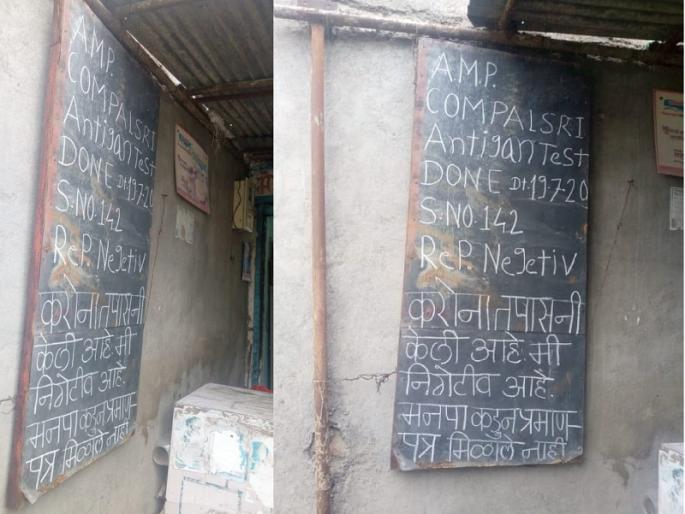 A.M.P.
COMPALSRI
Antigan Test
DONE Dt.19.7.20
S.NO.142
ReP. Negetiv
करोना तपासनी
केली आहे. मी
निगेटीव आहे.
मनपा कडुन प्रमाण-
पत्र मिळाले नाही
A.M.P.
COMPALSRI
Antigan Test
DONE Dt.19.7.20
S.NO.142
ReP. Negetiv
करोना तपासनी
केली आहे. मी
निगेटीव आहे.
मनपा कडुन प्रमाण-
पत्र मिळाले नाही